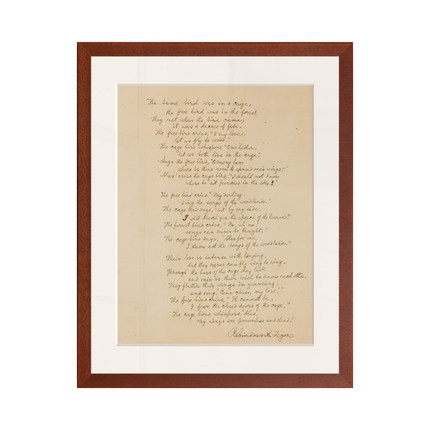 The tame bird was in a cage,
the free bird was in the forest.
They met when the time came,
it was a decree of fate.
The free bird cries, "O my love,
let us fly to wood."
The cage bird whispers, "Come hither,
let us both live in the cage."
Says the free bird, "Among bars
where is there room to spread one's wings?"
"Alas" cries the cage bird, "I should not know
where to sit perched in the sky."
The free bird cries, "My darling,
sing the songs of the woodlands."
The cage bird says, "Sit by my side,
I will teach you the speech of the learned."
The forest bird cries, "No, ah no!
songs can never be taught."
The cage bird says, "Alas for me,
I know not the songs of the woodlands."
Their love is intense with longing,
but they never can fly wing to wing.
Through the bars of the cage they look
and vain is their wish to know each other.
They flutter their wings in yearning,
and sing, "Come closer, my love."
The free bird cries, "It cannot be,
I fear the closed doors of the cage."
The cage bird whispers, "Alas,
my wings are powerless and dead."
Rabindranath Tagore